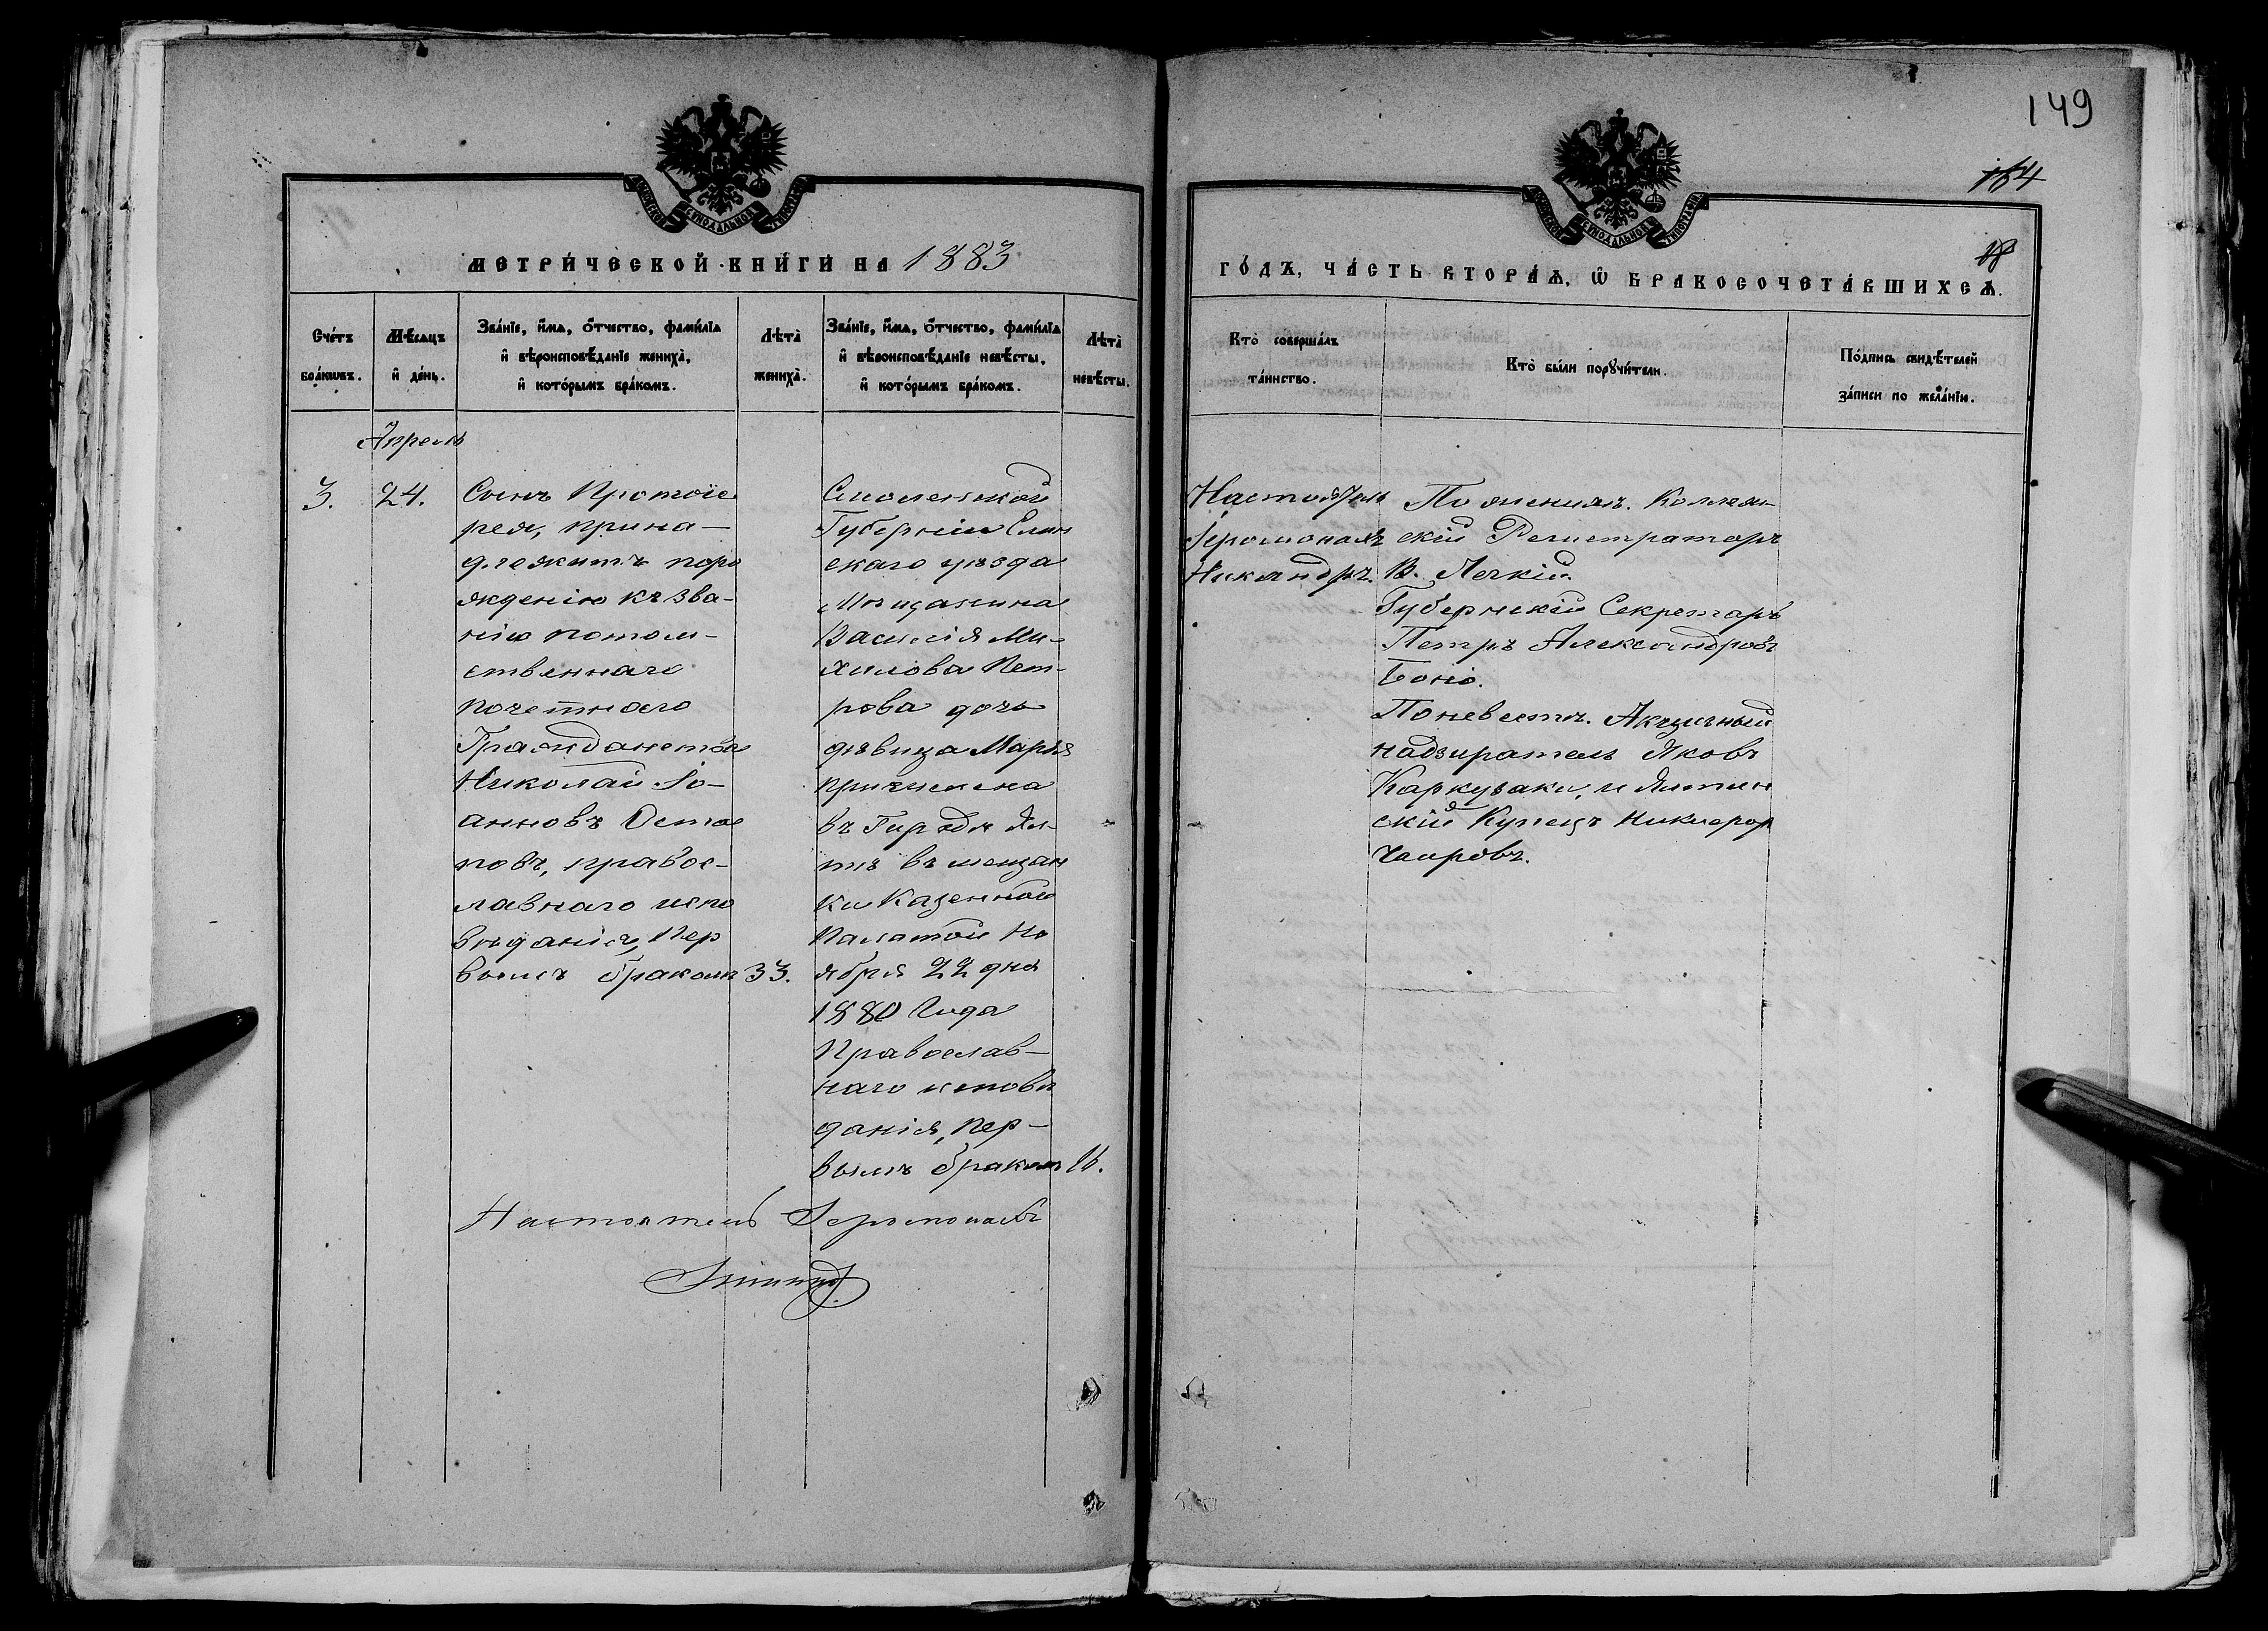 149
164
18
МЕТРИ́ЧЕСКОЙ КНИ́ГИ НА 1883
ГО́ДЪ, ЧА́СТЬ ВТОРА́Ѧ, Ѡ҆ БРАКОСОЧЕТА́ВШИХСѦ.
Сче́тъ
бра́кѡвъ.
Мѣ́сѧцъ
и҆ де́нь.
Зва́нїе, и҆́мѧ, ѻ҆́тчество, фами́лїа
и҆ вѣроисповѣ́данїе жениха̀,
и҆ кото́рымъ бра́комъ.
Лѣта̀
жениха̀.
Зва́нїе, и҆́мѧ, ѻ҆́тчество, фами́лїа
и҆ вѣроисповѣ́данїе невѣ́сты,
и҆ кото́рымъ бра́комъ.
Лѣта̀
невѣ́сты.
Кто̀ соверша́лъ
та́инство.
Кто̀ бы́ли порꙋчи́тели.
По́дпись свидѣ́телей
за́писи по жела́нїю.
Апрель
3.
24.
Сынъ Протоіе
рея, прина-
длежитъ поро
жденію къ зва-
нію потом-
ственнаго
почетнаго
Гражданства
Николай Іо-
анновъ Остро
повъ, правос-
лавнаго испо
веданія, Пер
вымъ бракомъ
33.
Смоленской
Губерніи Елин
скаго уѣзда
Мѣщанина
Василія Ми-
хилова Пет-
рова дочь
дѣвица Марія
причислена
въ Городе Ял-
тѣ въ мещан
ки Казенной
Палатой Но
ября 22 дня
1880 Года
Православ-
наго исповѣ
данія, Пер-
вымъ бракомъ
16.
Настоятель Іеромонахъ
Настоятель
Іеромонахъ
Никандръ.
По женихѣ. Коллеж-
скій Регистраторъ
В. Легкій.
Губернскій Секретарь
Петръ Александровъ
Боніо.
По невестѣ. Акцизный
надзиратель Яковъ
Каркузаки, и Ялтин
скій Купецъ Никифор
Чаировъ.